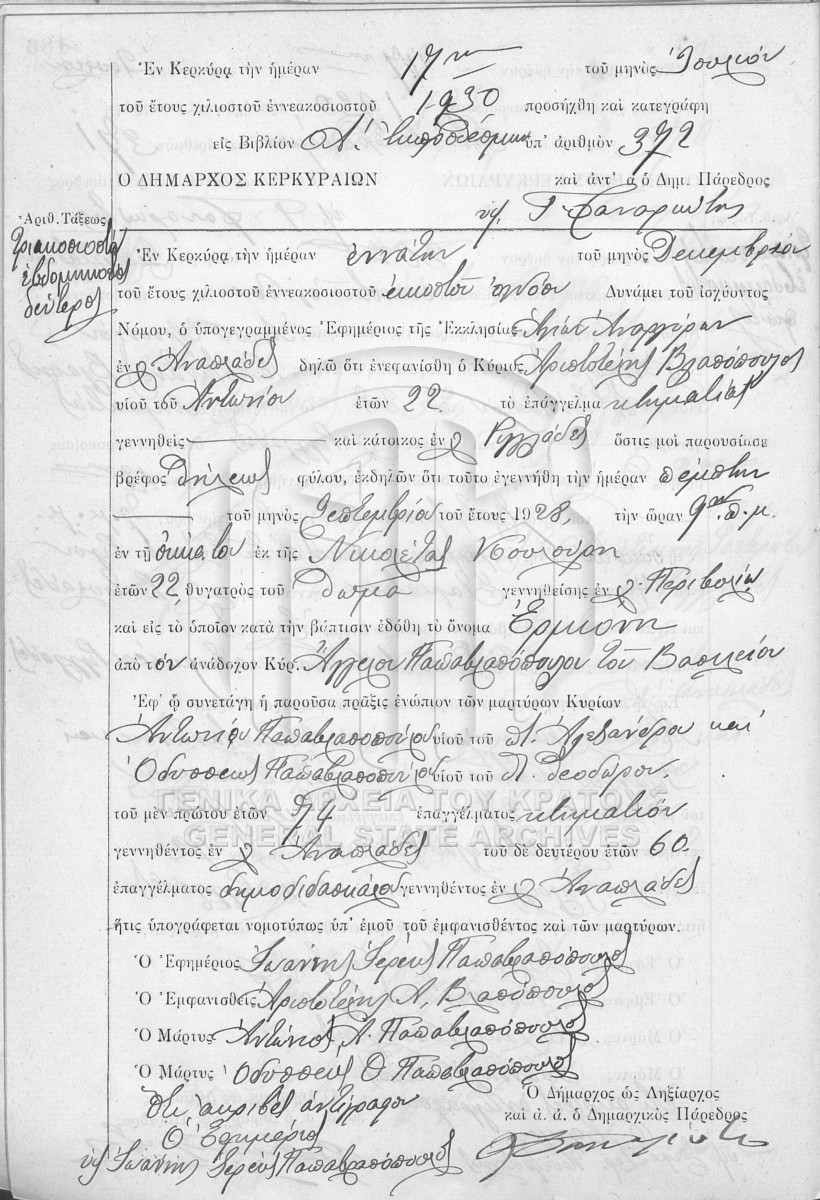 Ἐν Κερκύρᾳ τὴν ἡμέραν 17ην τοῦ μηνὸς Ἰουλίου
τοῦ ἔτους χιλιοστοῦ ἐννεακοσιοστοῦ 1930 προσήχθη καὶ κατεγράφη
εἰς Βιβλίον Λ. Ἐκπρόθεσμον ὑπ' ἀριθμὸν 372
Ο ΔΗΜΑΡΧΟΣ ΚΕΡΚΥΡΑΙΩΝ καὶ ἀντ' α ὁ Δημ. Πάρεδρος
Ἀριθ. Τάξεως
τριακοσιοστὸς
ἑβδομηκοστὸς
δεύτερος
Ἐν Κερκύρᾳ τὴν ἡμέραν ἐννάτην τοῦ μηνὸς Δεκεμβρίου
τοῦ ἔτους χιλιοστοῦ ἐννεακοσιοστοῦ εἰκοστοῦ ὀγδόου Δυνάμει τοῦ ἰσχύοντος
Νόμου, ὁ ὑπογεγραμμένος Ἐφημέριος τῆς Ἐκκλησίας Ἁγίων Ἀναργύρων
ἐν Ἀναπλάδες δηλῶ ὅτι ἐνεφανίσθη ὁ Κύριος Ἀριστοτέλης Βλαπόπουλος
υἱοῦ τοῦ Ἀντωνίου ἐτῶν 22 τὸ ἐπάγγελμα κτηματίας
γεννηθεὶς καὶ κάτοικος ἐν Ριγγλάδες ὅστις μοι παρουσίασε
βρέφος θήλεως φύλου, ἐκδηλῶν ὅτι τοῦτο ἐγεννήθη τὴν ἡμέραν πέμπτην
τοῦ μηνὸς Σεπτεμβρίου τοῦ ἔτους 1928, τὴν ὥραν 9ην π.μ.
ἐν τῇ οἰκίᾳ του ἐκ τῆς Νικολέτας
ἐτῶν 22, θυγατρὸς τοῦ Θωμᾶ γεννηθείσης ἐν Περιβολίῳ
καὶ εἰς τὸ ὁποῖον κατὰ τὴν βάπτισιν ἐδόθη τὸ ὄνομα Ἑρμιόνη
ἀπὸ τὸν ἀνάδοχον Κύρ. Ἄγγελον Παπαβλαπόπουλον τοῦ Βασιλείου
Ἐφ' ᾧ συνετάγη ἡ παροῦσα πρᾶξις ἐνώπιον τῶν μαρτύρων Κυρίων
Ἀντωνίου Παπαβλαποπούλου υἱοῦ τοῦ π. Ἀλεξάνδρου καὶ
Ὀδυσσέως Παπαβλαποπούλου υἱοῦ τοῦ π. Θεοδώρου.
τοῦ μὲν πρώτου ἐτῶν 74 ἐπαγγέλματος κτηματίου
γεννηθέντος ἐν Ἀναπλάδες τοῦ δὲ δευτέρου ἐτῶν 60.
ἐπαγγέλματος δημοδιδασκάλου γεννηθέντος ἐν Ἀναπλάδες
ἥτις ὑπογράφεται νομοτύπως ὑπ' ἐμοῦ τοῦ ἐμφανισθέντος καὶ τῶν μαρτύρων.
Ὁ Ἐφημέριος Ἰωάννης Ἱερεὺς Παπαβλαπόπουλος
Ὁ Ἐμφανισθεὶς Ἀριστοτέλης Α. Βλαπόπουλος
Ὁ Μάρτυς Ἀντώνιος Α. Παπαβλαπόπουλος
Ὁ Μάρτυς Ὀδυσσεὺς Θ Παπαβλαπόπουλος
Ὅτι ἀκριβὲς ἀντίγραφον
Ὁ Ἐφημέριος
υπ Ἰωάννης Ἱερεὺς Παπαβλαπόπουλος
Ὁ Δήμαρχος ὡς Ληξίαρχος
καὶ ἀ. ἀ. ὁ Δημαρχικὸς Πάρεδρος
ΓΕΝΙΚΑ ΑΡΧΕΙΑ ΤΟΥ ΚΡΑΤΟΥΣ
GENERAL STATE ARCHIVES